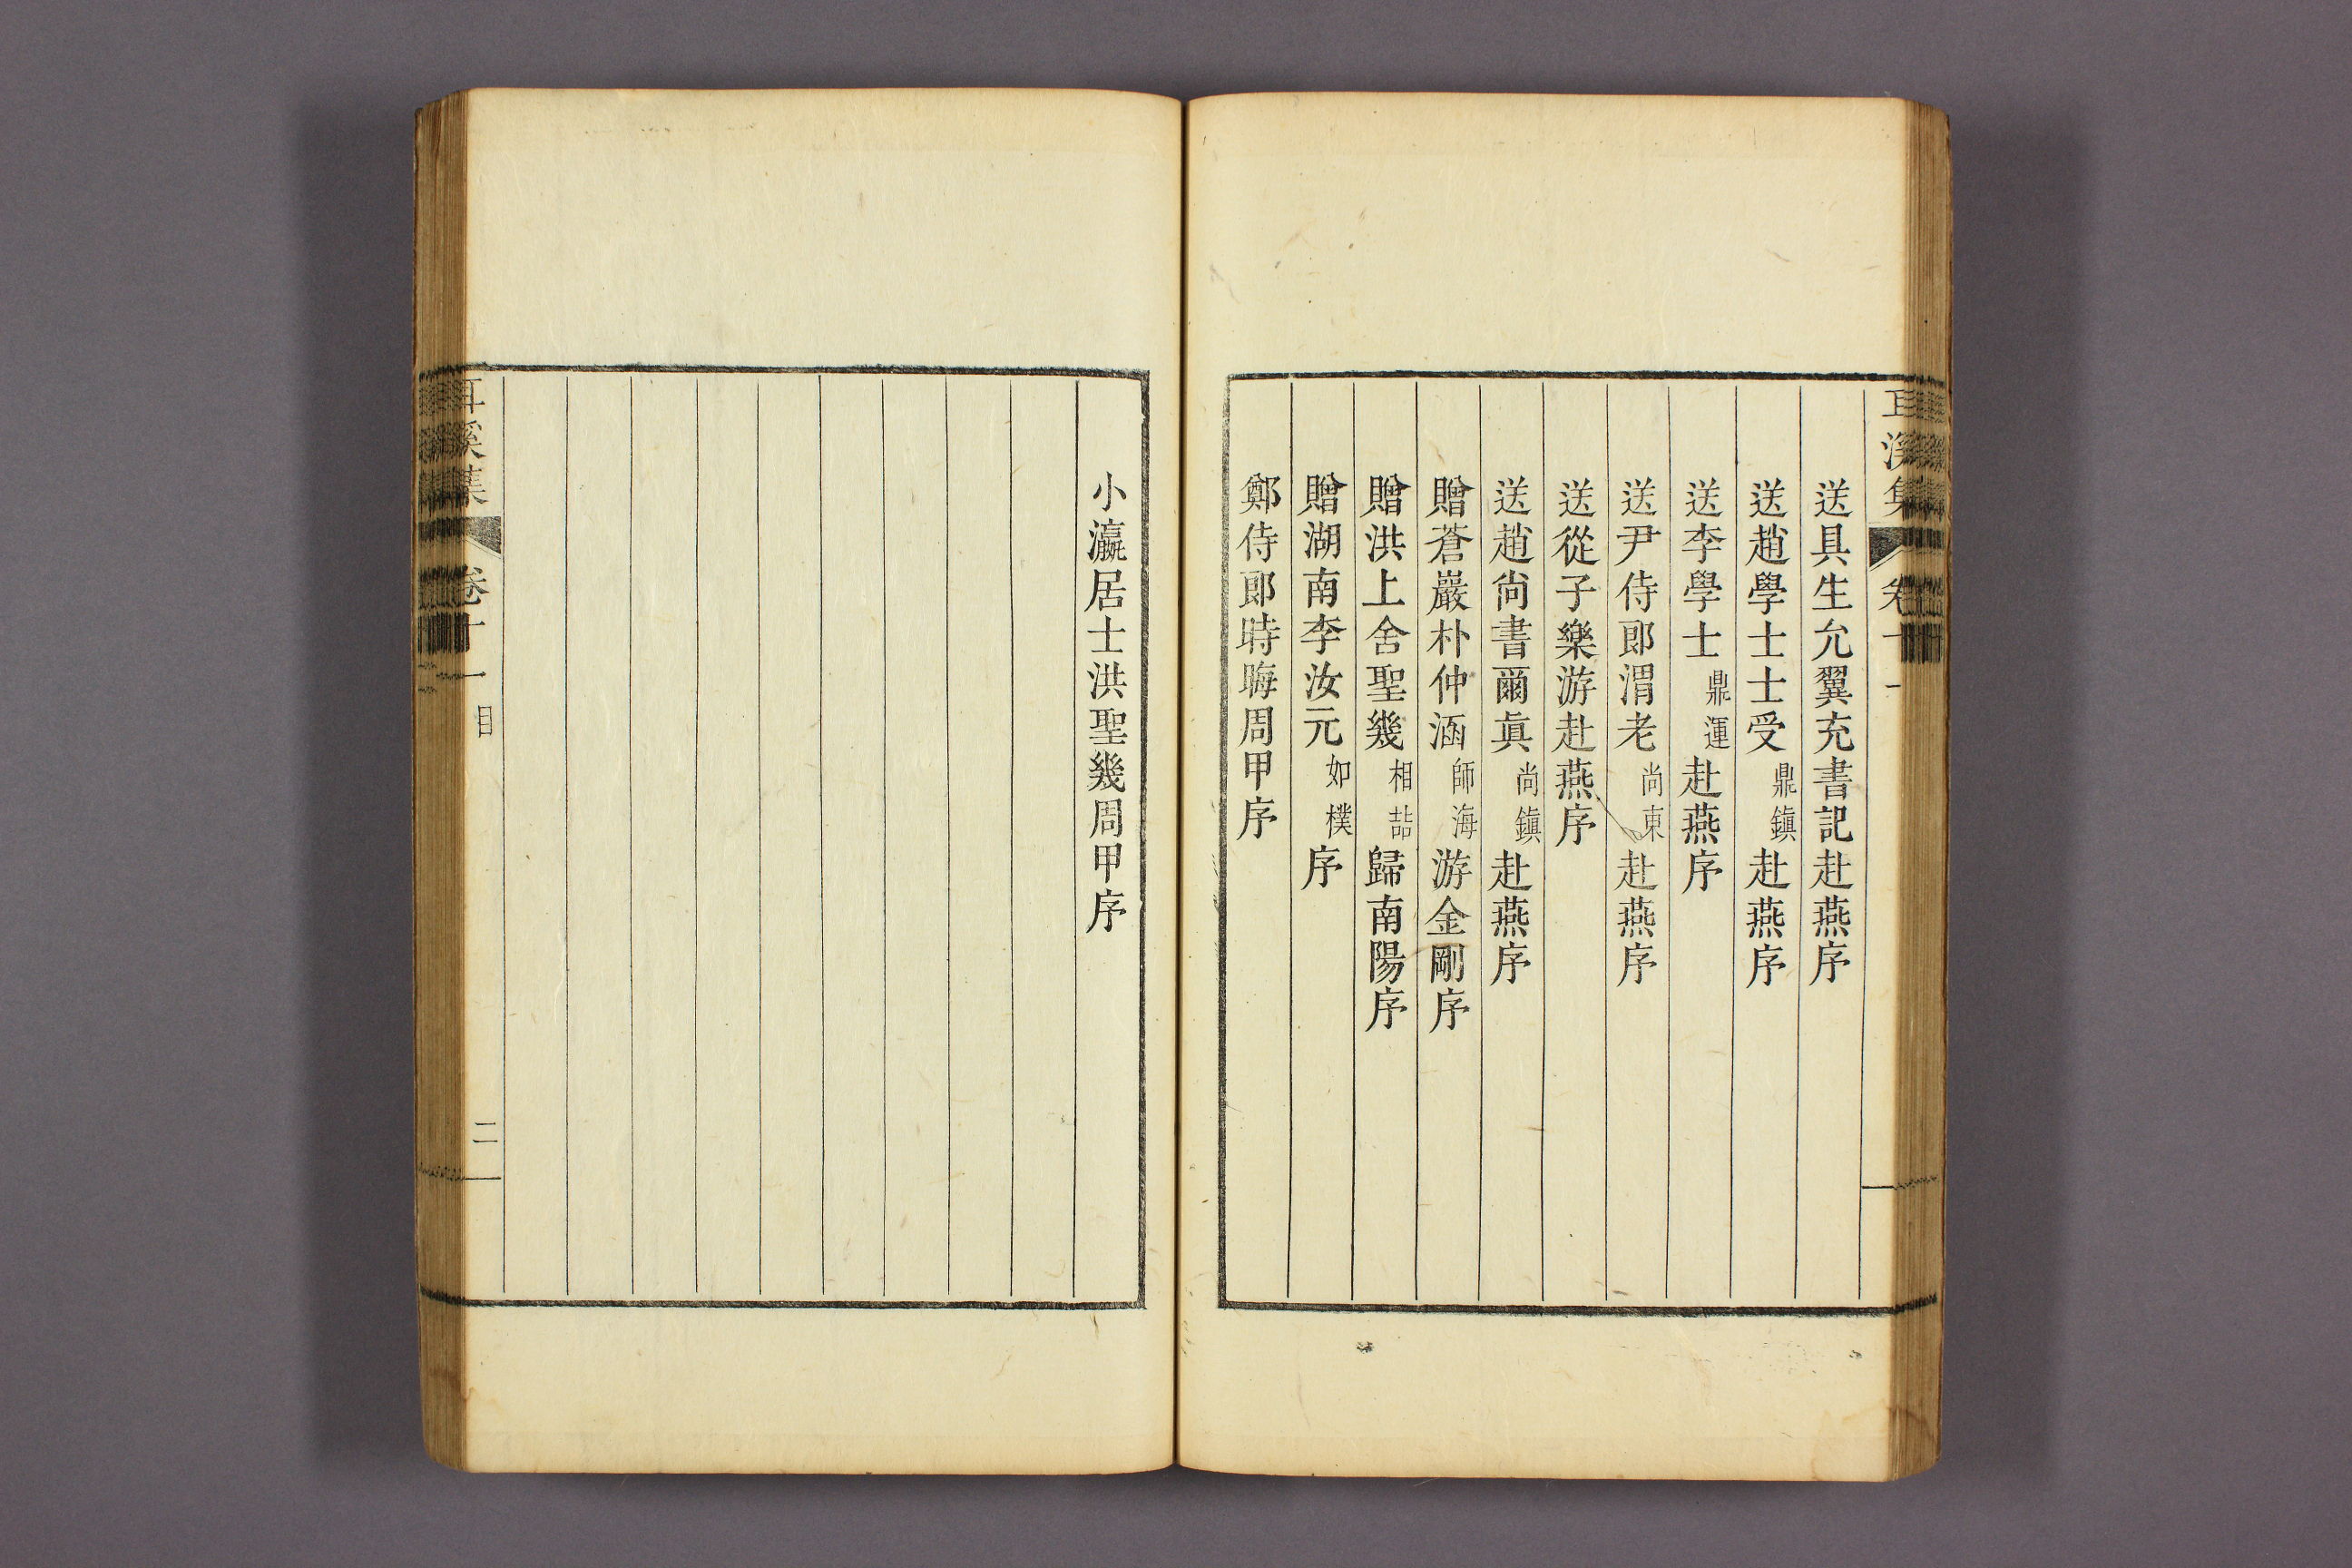 耳溪集 卷十一
送具生允翼充書記赴燕序
送趙學士士受鼎鎮赴燕序
送李學士鼎運赴燕序
送尹侍郎渭老尚東赴燕序
送從子樂游赴燕序
送趙尙書爾眞尙鎭赴燕序
贈蒼巖朴仲涵師海游金剛序
贈洪上舍聖幾相喆歸南陽序
贈湖南李汝元如樸序
鄭侍郎時晦周甲序
小瀛居士洪聖幾周甲序
耳溪集 卷十一 目 二